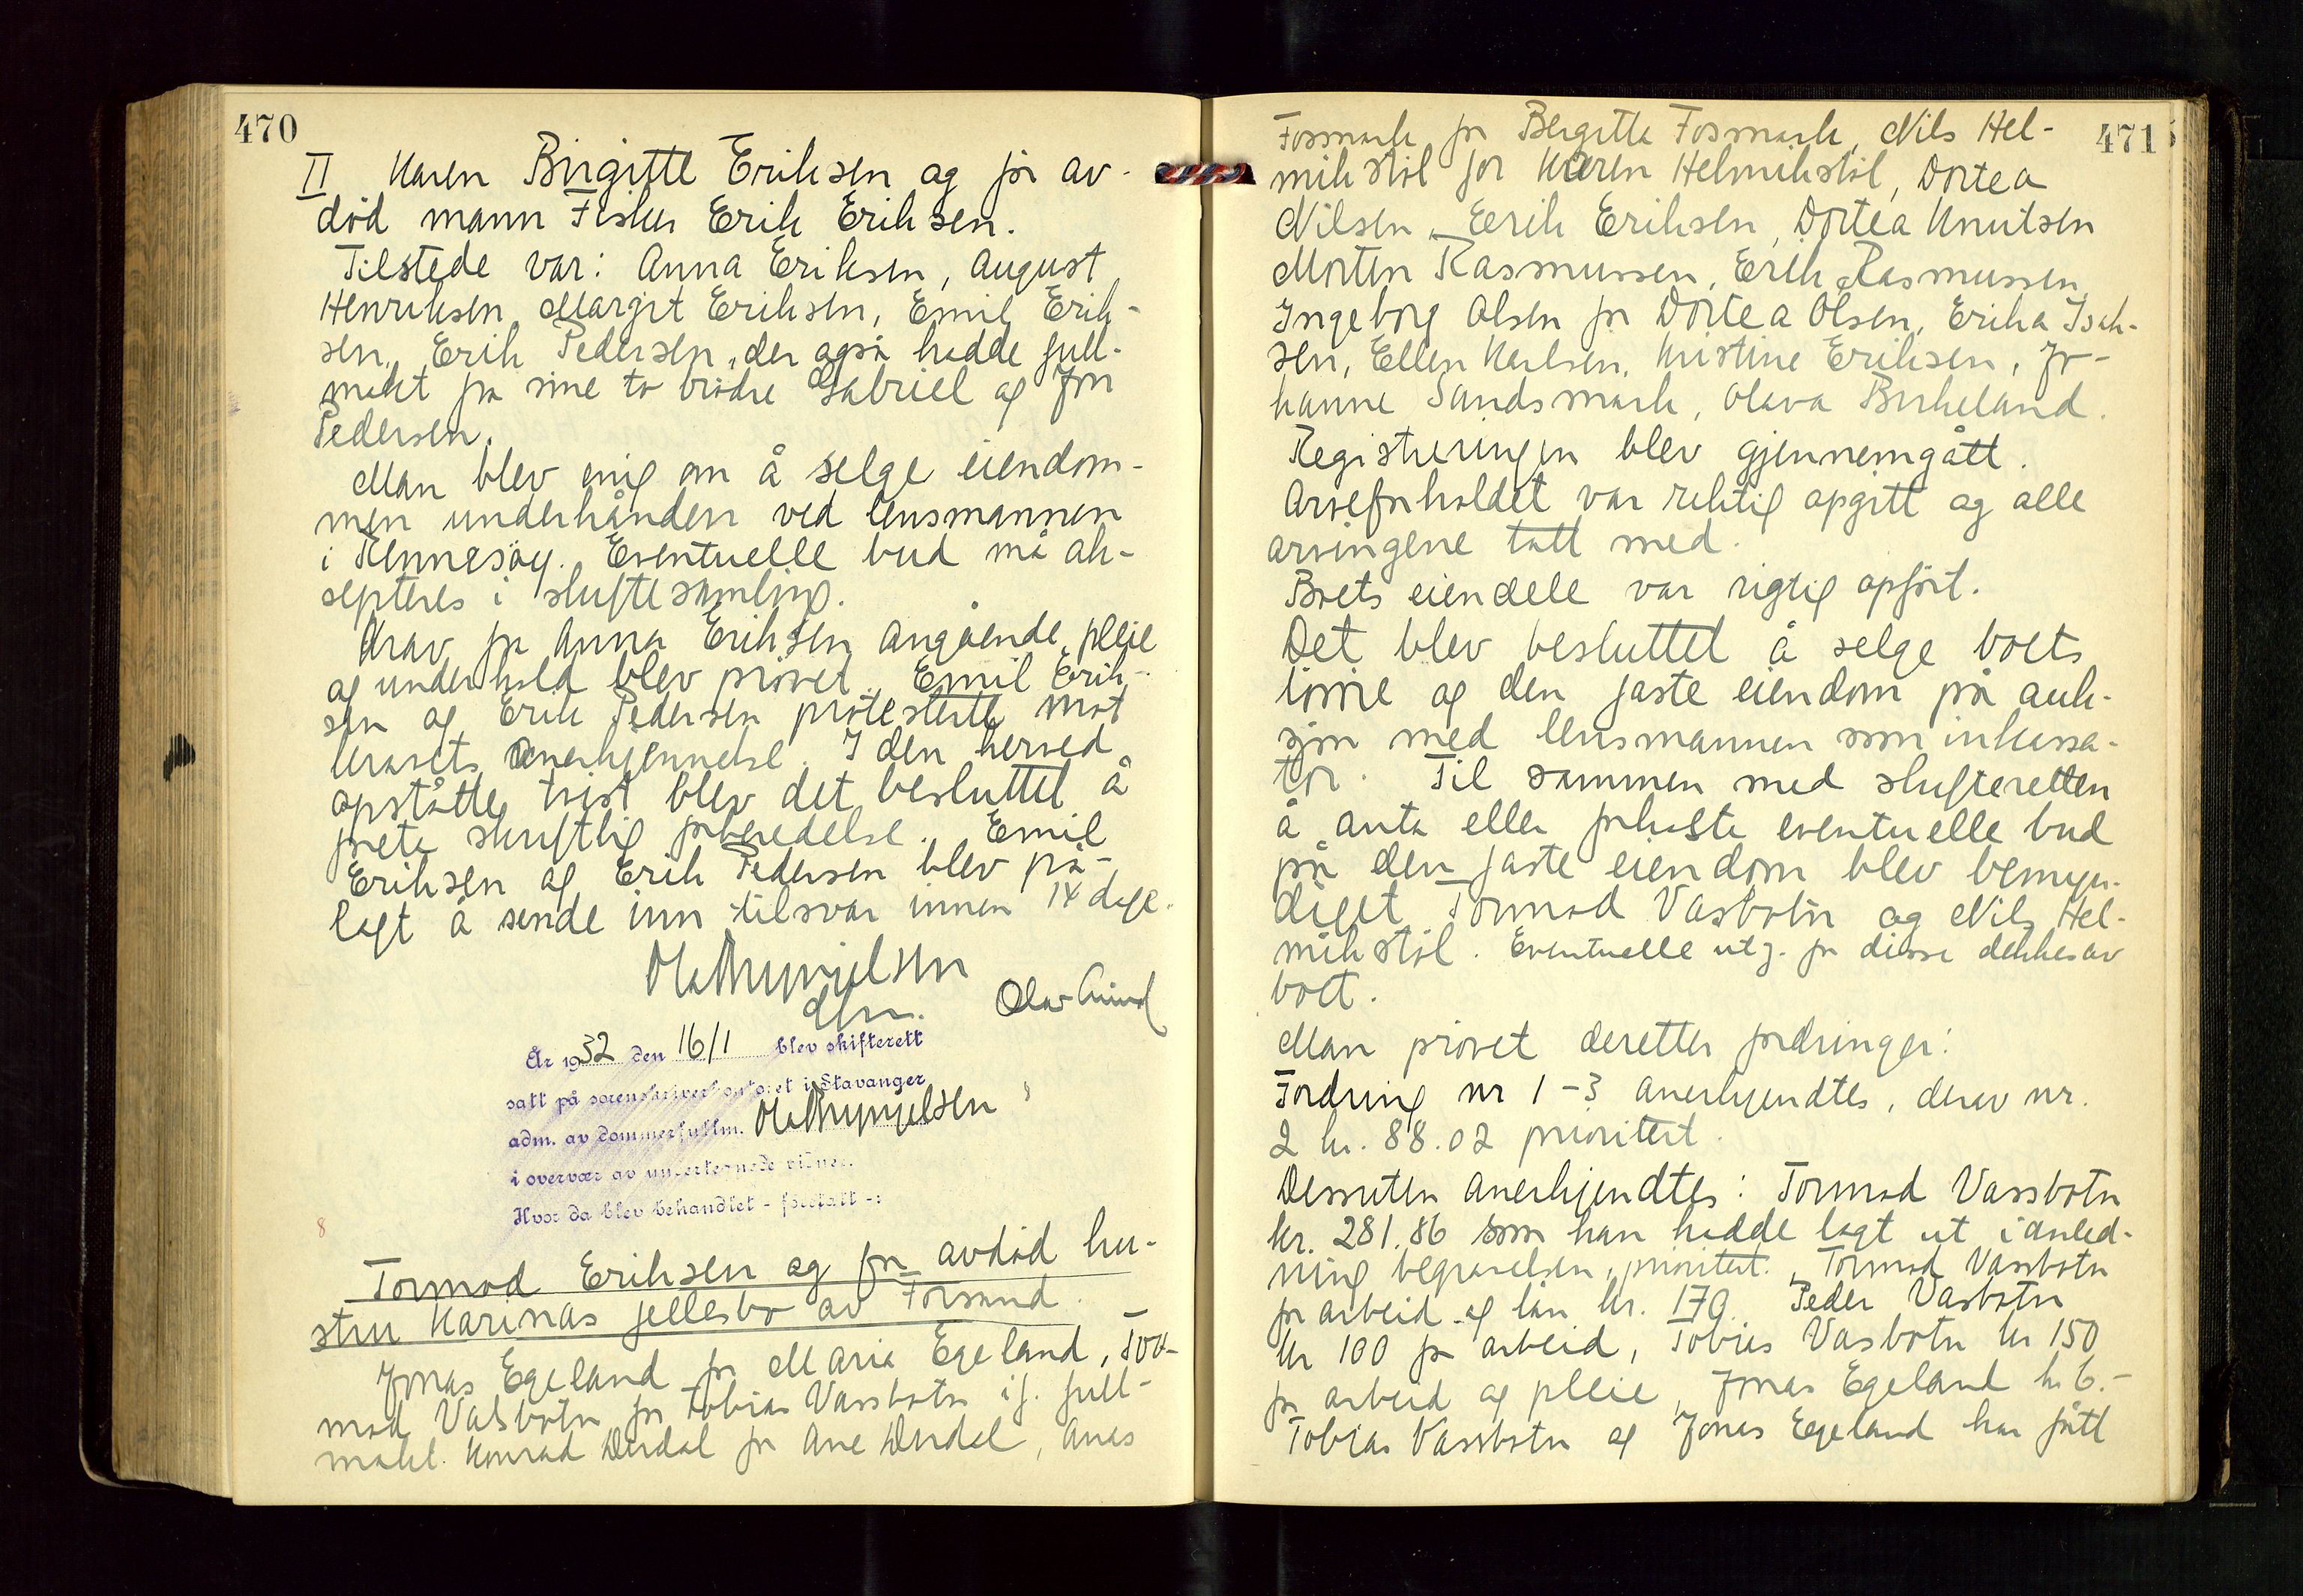 470
II Karen Birgitte Eriksen og for av-
død mann Fisker Erik Eriksen.
Tilstede var: Anna Eriksen, August
Henriksen, Margit Eriksen, Emil Erik-
sen, Erik Pedersen, der også hadde full-
makt fra sine to brødre Gabriel og Jon
Pedersen.
Man blev enig om å selge eiendom-
men underhånden ved lensmannen
i Rennesøy. Eventuelle bud må ak-
septeres i skiftesamling.
Krav fra Anna Eriksen angående pleie
og underhold blev prøvet. Emil Erik-
sen og Erik Pedersen protesterte mot
kravets anerkjennelse. I den herved
opståtte tvist blev det besluttet å
foreta skriftlig forberedelse. Emil
Eriksen og Erik Pedersen blev på-
lagt å sende inn tilsvar innen 14 dage.
Olav
År 1932 den 16/1 blev skifterett
satt på sorenskriverkontoret i Stavanger
adm. av dommerfullm.
i overvær av undertegnede vidner.
Hvor da blev behandlet - foretatt -:
8
Tormod Eriksen og for avdød hu-
stru Karinas fellesbo av Forsand.
Jonas Egeland for Maria Egeland, Tor-
mod Vasbotn for Tobias Vassbotn if. full-
makt. Konrad Dirdal for Ane Dirdal, Anas
471
Fosmark for Bergitta Fosmark, Nils Hel-
mikstøl for Karen Helmikstøl, Dortea
Nilsen, Eerik Eriksen, Dortea Knutsen
Morten Rasmussen, Erik Rasmussen,
Ingeborg Olsen for Dortea Olsen, Erika Isak-
sen, Ellen Karlsen, Kristine Eriksen, Jo-
hanne Sandsmark, Olava Birkeland.
Registreringen blev gjennemgått.
Arveforholdet var riktig opgitt og alle
arvingene tatt med.
Boets eiendele var rigtig opført.
Det blev besluttet å selge boets
løsøre og den faste eiendom på auk-
sjon med lensmannen som inkassa-
tor. Til sammen med skifteretten
å anta eller forkaste eventuelle bud
på den faste eiendom blev bemyn-
diget Tormod Vasbotn og Nils Hel-
mikstøl. Eventuelle utg. for disse dekkes av
boet.
Man prøvet deretter fordringer:
Fordring nr 1-3 anerkjendtes, derav nr.
2 kr. 88.02 prioritert.
Dessuten anerkjendtes: Tormod Vassbotn
kr. 281.86 som han hadde lagt ut i anled-
ning begravelsen, prioritert. Tormod Vassbotn
for arbeid og lån kr. 179. Peder Vasbotn
kr 100 for arbeid, Tobias Vasbotn kr 150
for arbeid og pleie, Jonas Egeland kr 6.-
Tobias Vassbotn og Jonas Egeland har fått